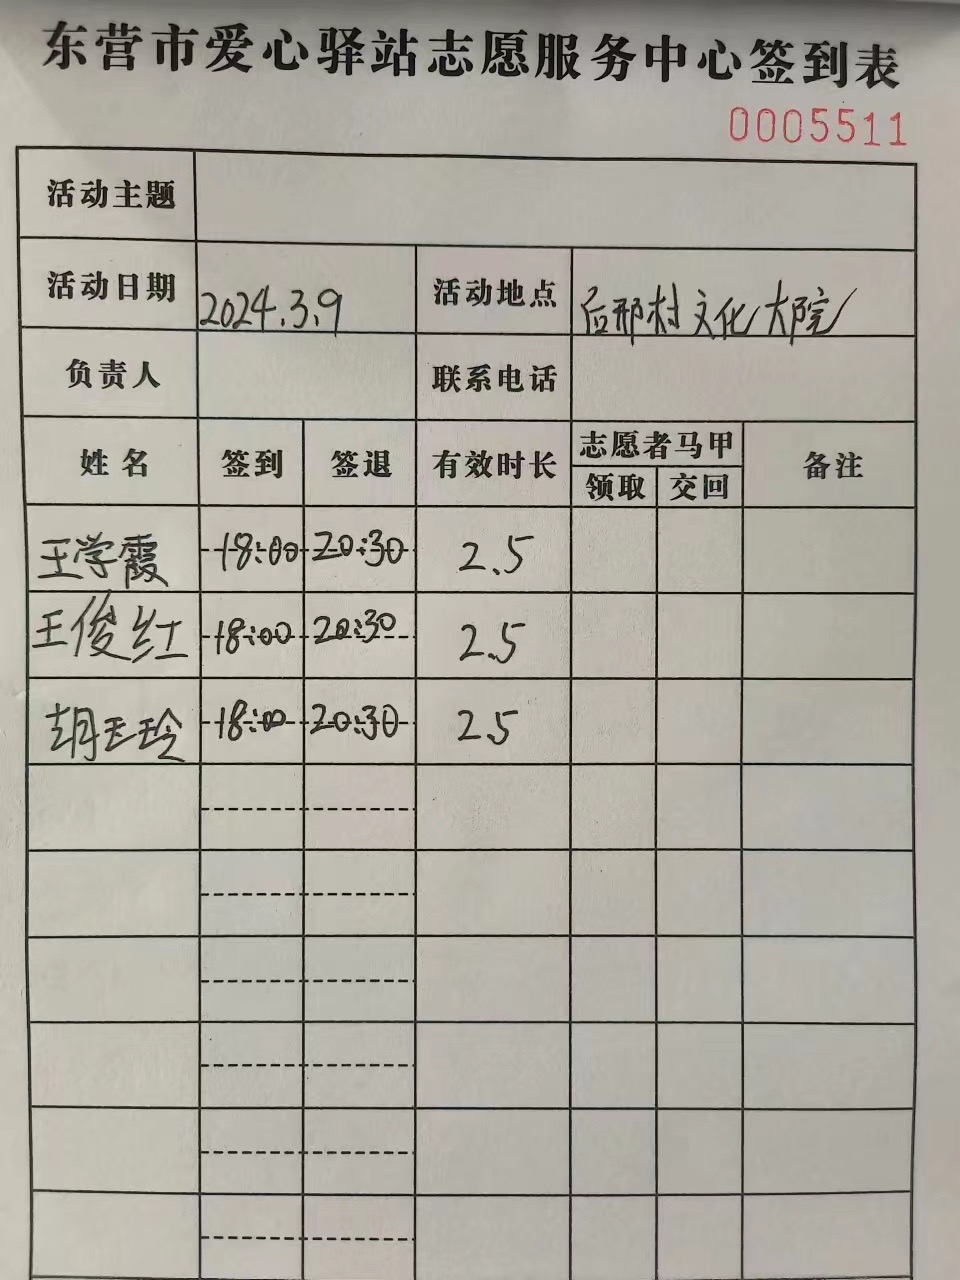 东营市爱心驿站志愿服务中心签到表
0005511
活动主题
活动日期 2024.3.9 活动地点 后邢村文化大院
负责人 联系电话
姓名 签到 签退 有效时长 志愿者马甲 备注
领取 交回
王学霞 18:00 20:30 2.5
王俊红 18:00 20:30 2.5
胡玉玲 18:00 20:30 2.5